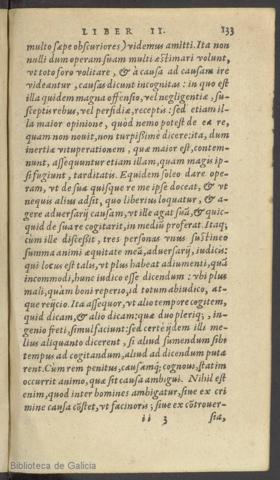 LIBER II. 133
multo sæpe obscuriores) videmus amitti. Ita non
nulli dum operam suam multi æstimari volunt,
vt toto foro volitare, & à causa ad causam ire
videantur, causas dicunt incognitas: in quo est
illa quidem magna offensio, vel negligentiæ, su-
sceptis rebus, vel perfidiæ, receptis: sed etiam il-
la maior opinione, quòd nemo potest de ea re,
quam non nouit, non turpissimè dicere: ita, dum
inertiæ vituperationem, quæ maior est, contem-
nunt, assequuntur etiam illam, quam magis ip-
si fugiunt, tarditatis. Equidem soleo dare ope-
ram, vt de sua quisque re me ipse doceat, & vt
nequis alius adsit, quo liberius loquatur, & a-
gere aduersarij causam, vt ille agat suã, & quic-
quid de sua re cogitarit, in mediũ proferat. Itaq;
cùm ille discessit, tres personas vnus sustineo
summa animi æquitate meã, aduersarij, iudicis:
qui locus est talis, vt plus habeat adiumenti, quàm
incommodi, hunc iudico esse dicendum: vbi plus
mali, quàm boni reperio, id totum abiudico, at-
que reijcio. Ita assequor, vt alio tempore cogitem,
quid dicam, & alio dicam: quæ duo pleriq;, in-
genio freti, simul faciunt: sed certè ijdem illi me-
lius aliquanto dicerent, si aliud sumendum sibi
tempus ad cogitandum, aliud ad dicendum puta
rent. Cùm rem penitus, causamq; cognoui, statim
occurrit animo, quæ sit causa ambigui. Nihil est
enim, quod inter homines ambigatur, siue ex cri
mine causa cõstet, vt facinoris; siue ex cõtrouer-
ii 3 sia,
Biblioteca de Galicia